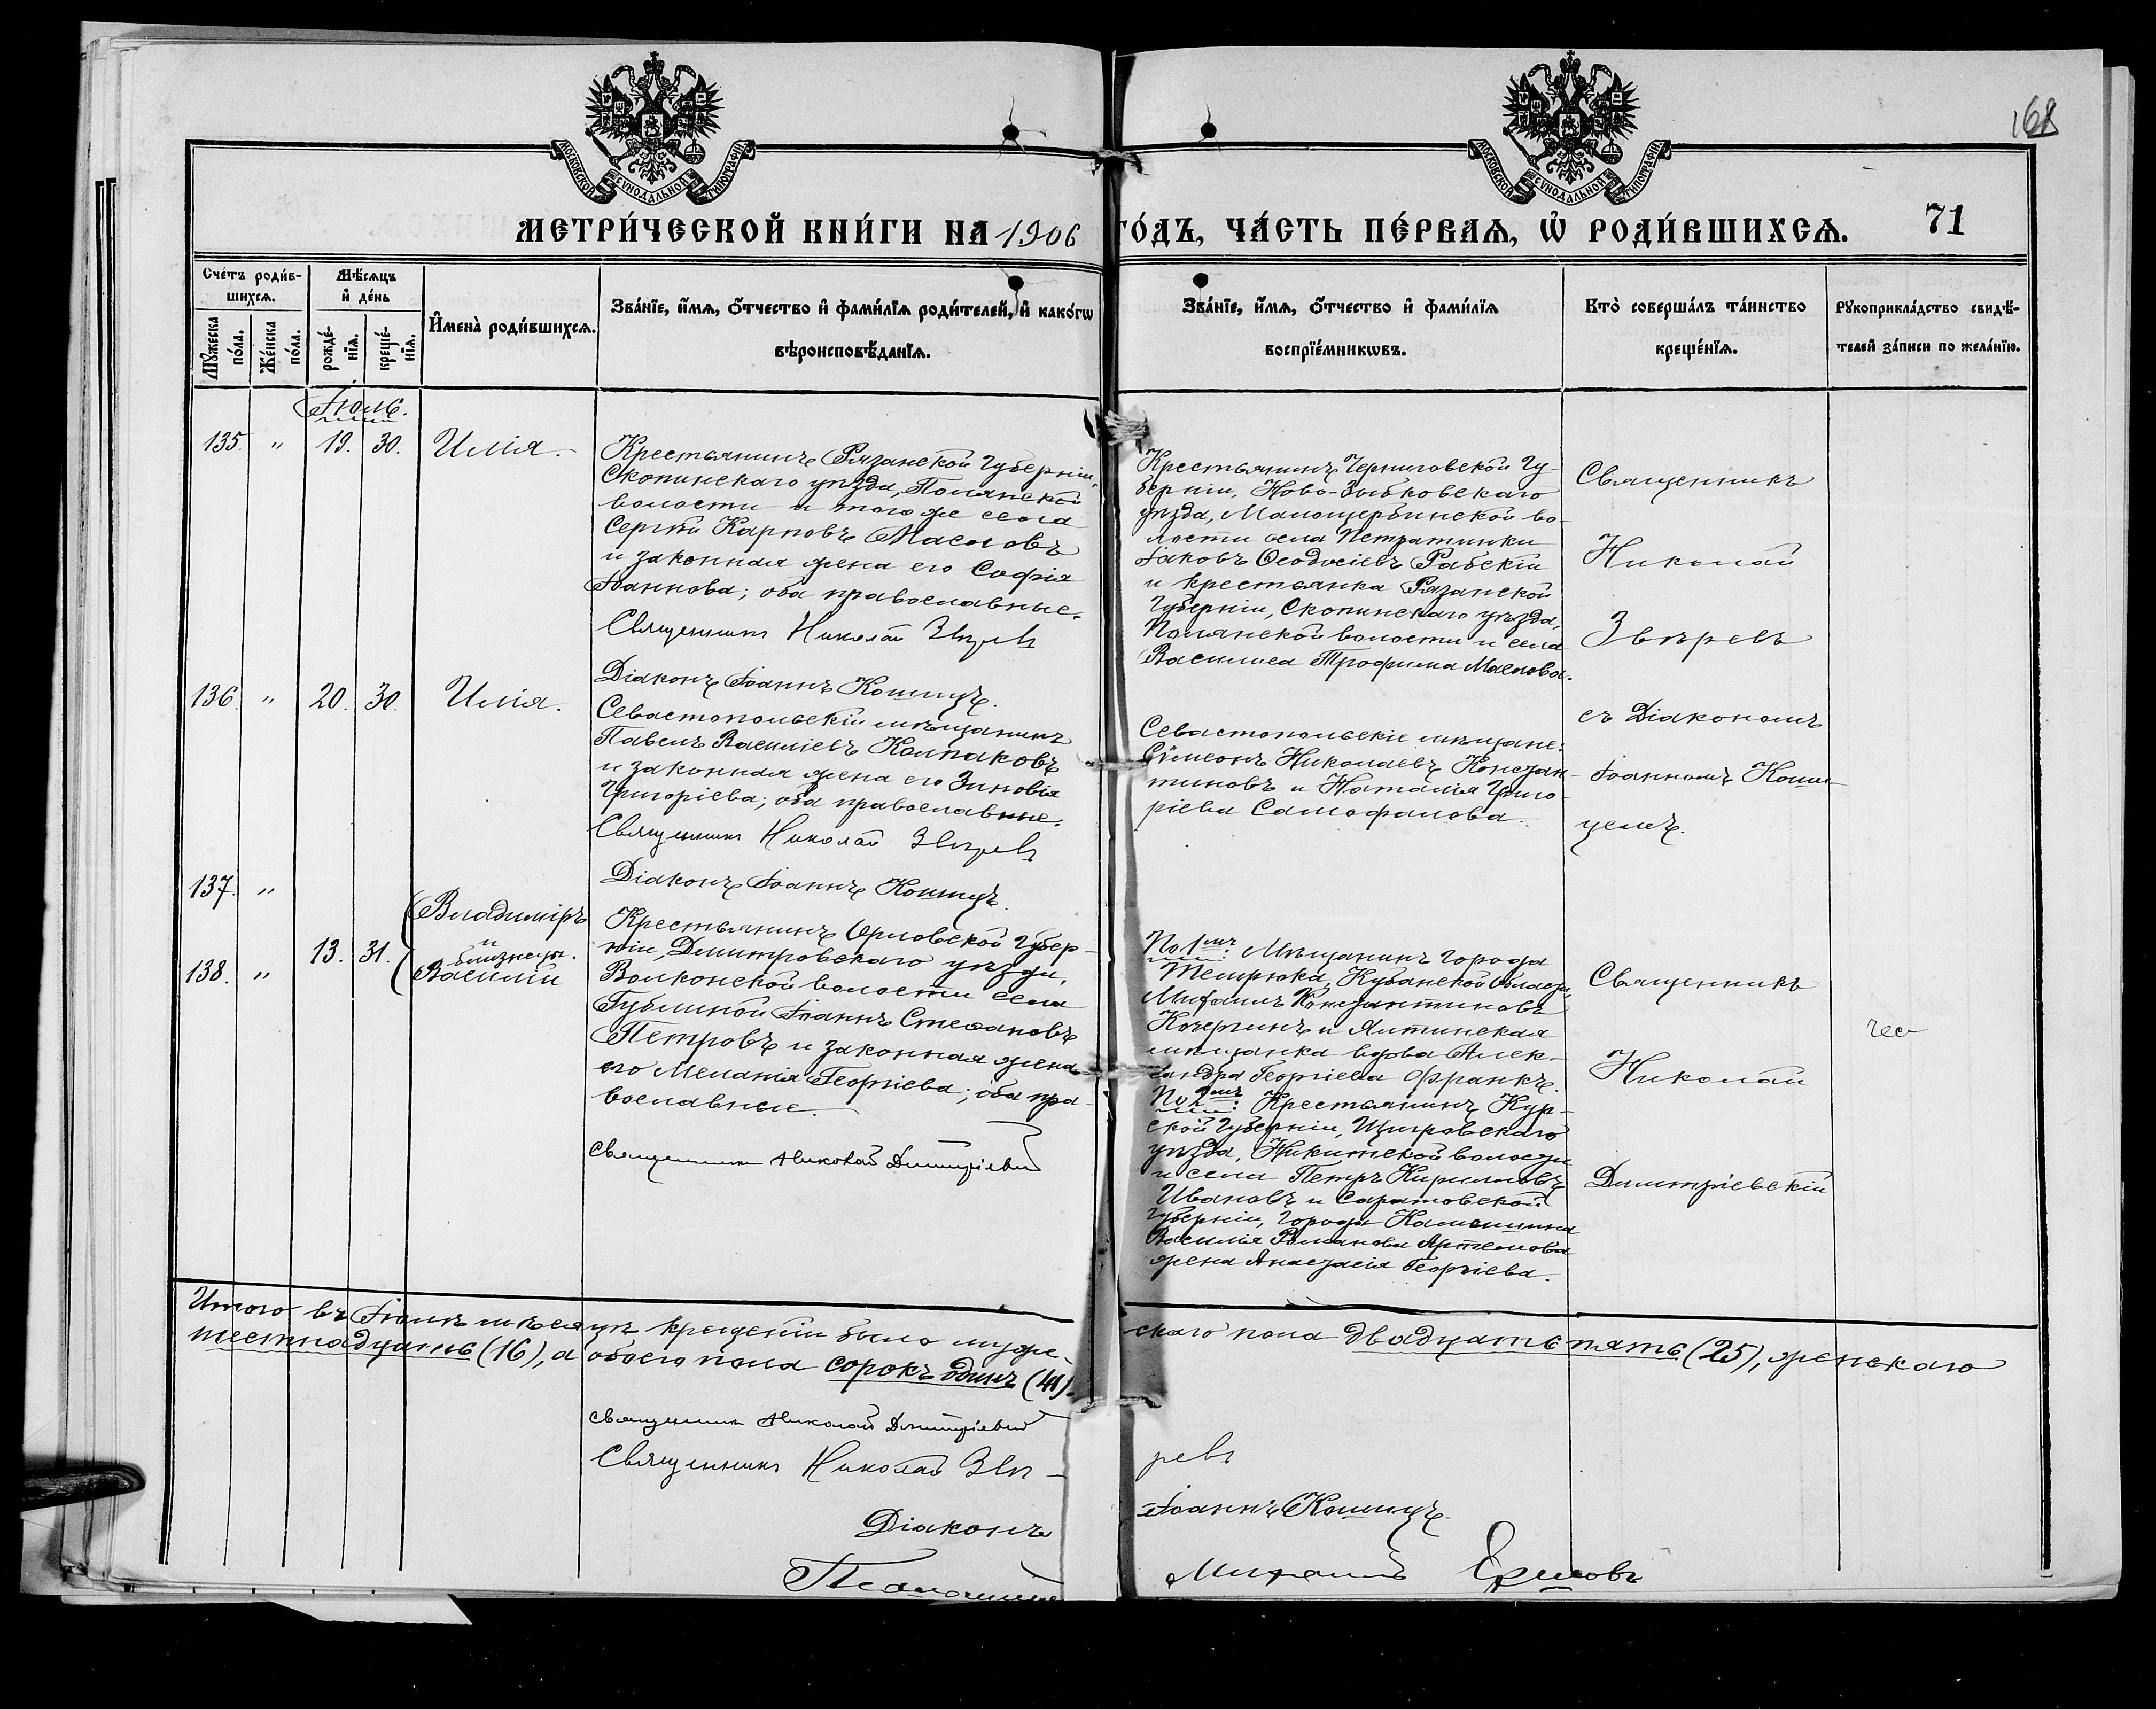 168
МОСКОВСКОЙ СѴНОДАЛЬНОЙ ТИПОГРАФІИ
МОСКОВСКОЙ СѴНОДАЛЬНОЙ ТИПОГРАФІИ
МЕТРИ́ЧЕСКОЙ КНИ́ГИ НА 1906 ГО́ДЪ, ЧА́СТЬ ПЕ́РВАѦ, Ѡ҆ РОДИ́ВШИХСѦ. 71
Сче́тъ роди́в-
шихсѧ.
Мꙋ́жеска
по́ла.
Же́нска
по́ла.
Мѣ́сяцъ
и҆ де́нь
рожде́-
нїѧ.
креще́-
нїѧ.
И҆мена̀ роди́вшихсѧ.
Зва́нїе, и҆́мѧ, ѻ҆́тчество и҆ фами́лїѧ роди́телей, и҆ како́гѡ
вѣроисповѣ́данїѧ.
Зва́нїе, и҆́мѧ, ѻ҆́тчество и҆ фами́лїѧ
воспрїе́мникѡвъ.
Кто̀ соверша́лъ та́инство
креще́нїѧ.
Рꙋкоприкла́дство свидѣ́-
телей за́писи по жела́нїю.
Іюль.
135. " 19. 30. Илія.
Крестьянинъ Рязанской Губерніи,
Скопинскаго уѣзда, Полянской
волости и того же села
Сергѣй Карповъ Масловъ
и законная жена его Софія
Іоаннова; оба православные.
Священникъ Николай Звѣревъ
Діаконъ Іоаннъ Кошицъ.
Крестьянинъ Черниговской Гу-
берніи, Ново-Зыбковскаго
уѣзда, Малощербинской во-
лости села Петрятинки
Іаковъ Ѳеодосіевъ Рабскій
и крестьянка Рязанской
Губерніи, Скопинскаго уѣзда,
Полянской волости и села
Василиса Трофима Маслова.
Священникъ
Николай
Звѣревъ
съ Діакономъ
Іоанномъ Коши-
цемъ.
136. " 20. 30. Илія.
Севастопольскій мѣщанинъ
Павелъ Василіевъ Колпаковъ
и законная жена его Зиновія
Григоріева; оба православные.
Священникъ Николай Звѣревъ
Діаконъ Іоаннъ Кошицъ.
Севастопольскіе мѣщане:
Сѵмеонъ Николаевъ Констан-
тиновъ и Наталія Григо-
ріева Самофалова.
137. "
138. "
13. 31.
Владиміръ
и
близнецы.
Василій
Крестьянинъ Орловской Губер-
ніи, Димитровскаго уѣзда,
Волконской волости села
Гублиной Іоаннъ Стефановъ
Петровъ и законная жена
его Меланія Георгіева; оба пра-
вославные.
Священникъ Николай Димитріевскій
По 1мъ: Мѣщанинъ города
Темрюка, Кубанской Области,
Михаилъ Константиновъ
Кочергинъ и Ялтинская
мѣщанка вдова Алек-
сандра Георгіева Франкъ.
По 2мъ: Крестьянинъ Кур-
ской Губерніи, Щигровскаго
уѣзда, Никитской волости
и села Петръ Кирилловъ
Ивановъ и Саратовской
Губерніи, города Камышина
Василія Романова Артемова
жена Анастасія Георгіева.
Священникъ
Николай
Димитріевскій
Итого въ Іюлѣ мѣсяцѣ крещеній было муже-
скаго пола двадцать пять (25), женскаго
шестнадцать (16), а обоего пола сорокъ одинъ (41).
Священникъ Николай Димитріевскій
Священникъ Николай Звѣ-
ревъ
Діаконъ
Іоаннъ Кошицъ.
Псаломщикъ
Михаилъ Ершовъ